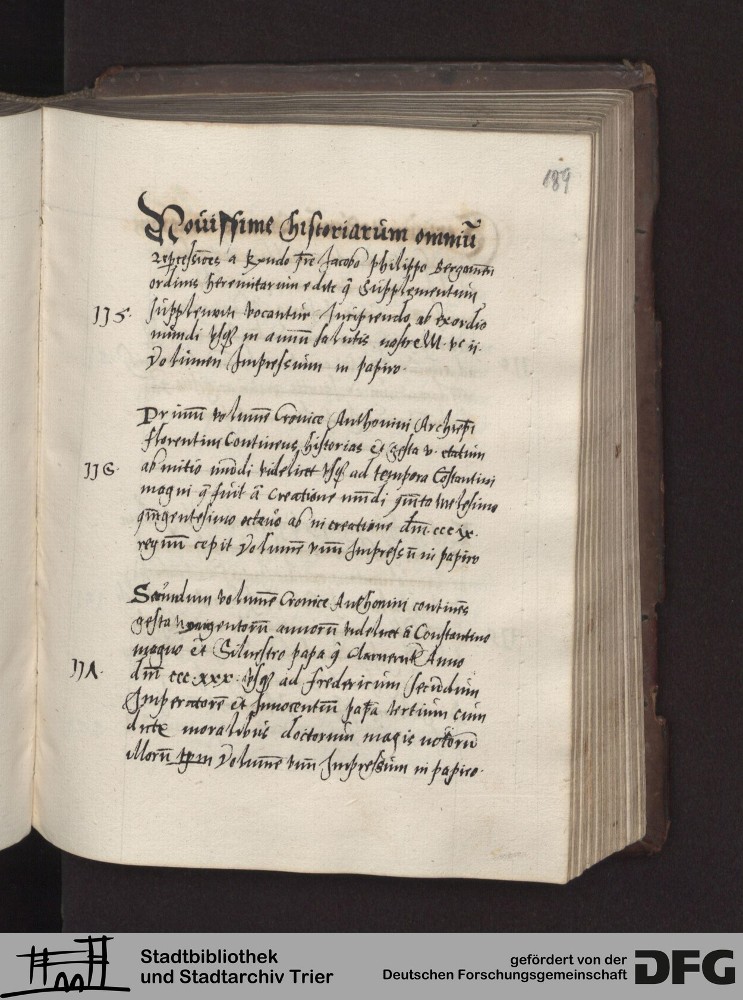 189
Novissime historiarum omniū
a Jacobo philippo Bergomen
ordinis heremitarum edite q̄ Supplementum
115. Supplementi vocantur Incipiendo ab exordio
mundi vsq̄ in annū salutis nostre M. vc ij.
Volumen Impressum in papiro.
Primū volumē Cronice Anthonini Archiepi
florentini Continens historias et gesta v. etatum
116. ab initio mūdi videlicet vsq̄ ad tempora Costantini
magni q̄ fuit ā Creatione mūdi
octauo ab in creatione dm̄. ccc ix.
regnū cepit Volumē vnū Impressū in papiro
Secundum volumē Cronice Anthonini continēs
gesta annorū videlicet ā Constantino
magno et Siluestro papa q̄ Anno
117. dm̄ ccc xxx. vsq̄ ad fredericum secūdum
Imperatorē et Innocentiū papā tertium cum
dictis moralibus doctorum magis
illorū Volumē vnū Impressum in papiro.
Stadtbibliothek
und Stadtarchiv Trier
gefördert von der
Deutschen Forschungsgemeinschaft
DFG